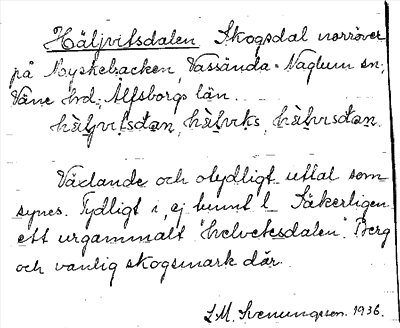 Häljvitsdalen Skogsdal norröver
på Nyskebacken, Vassända-Naglum sn;
Väne hd; Älfsborgs län.
hàl̥jvitsdan, hàl̥viks, hàl̥visdan.
Växlande och otydligt uttal som
synes. Tydligt i, ej tunnt l. Säkerligen
ett urgammalt "helvetesdalen". Berg
och vanlig skogsmark där.
S.M. Svenungsson. 1936.